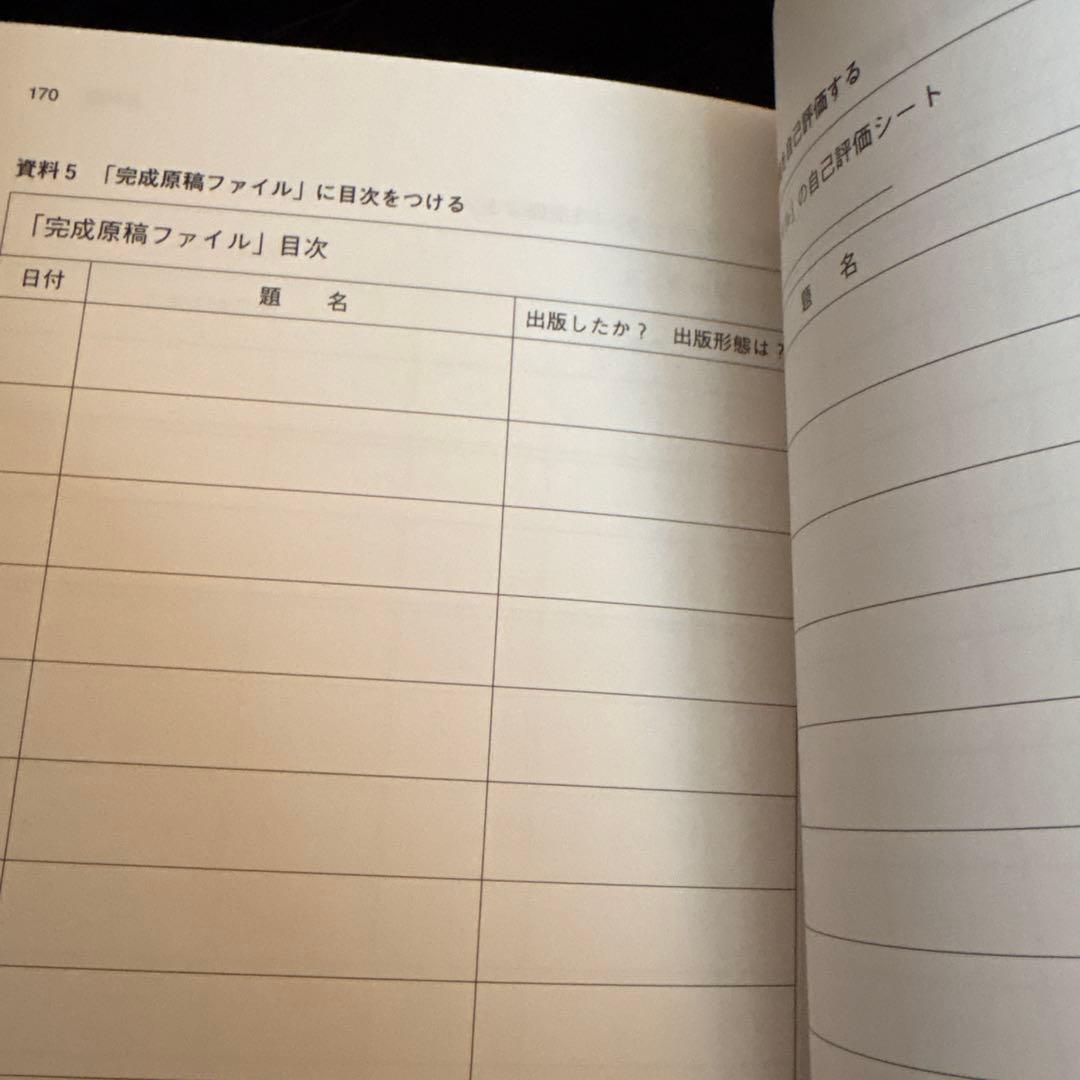 170
資料5 「完成原稿ファイル」に目次をつける
「完成原稿ファイル」目次
日付 題 名 出版したか? 出版形態は?
自己評価する
の自己評価シート
題 名